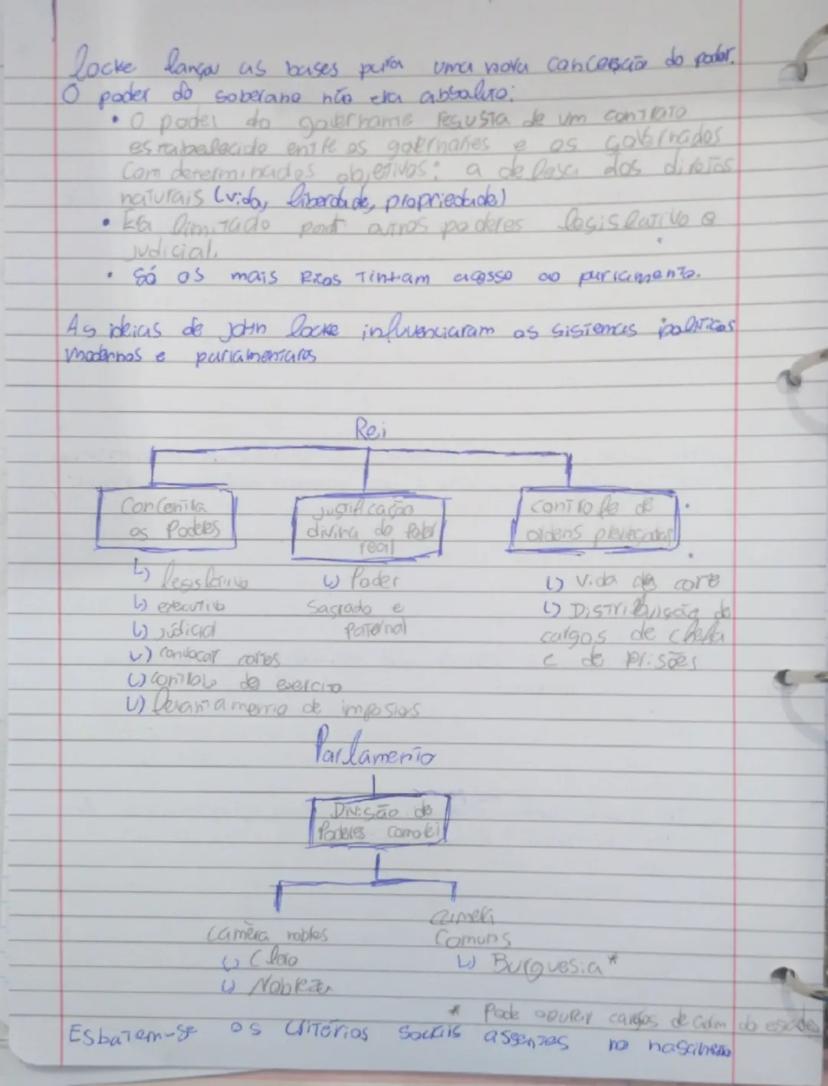 Locke lança as bases para uma nova conceção do poder.
O poder do soberano não era absoluto:
• O poder do governante resulta de um contrato
estabelecido entre os governantes e os governados
com determinados objetivos: a defesa dos direitos
naturais (vida, liberdade, propriedade)
• Era limitado por outros poderes legislativo e
judicial.
• Só os mais Ricos Tinham acesso ao parlamento.
As ideias de John Locke influenciaram os sistemas políticos
modernos e parlamentares
Rei
Concentra os Poderes
Justificação divina do poder real
controlo de ordens
↳ legislativo
↳ executivo
↳ judicial
↳ convocar cortes
↳ controlo do exercito
↳ levantamento de impostos
↳ Poder
Sagrado e
Paternal
↳ Vida da corte
↳ Distribuição de
cargos de chefia
e de prisões
Parlamento
Divisão de
Poderes com o rei
Camêra nobles
↳ Clero
↳ Nobreza
Camera
Comuns
↳ Burguesia*
* Pode cargos de do estado
Esbatem-se os critérios sociais assentes no nascimento